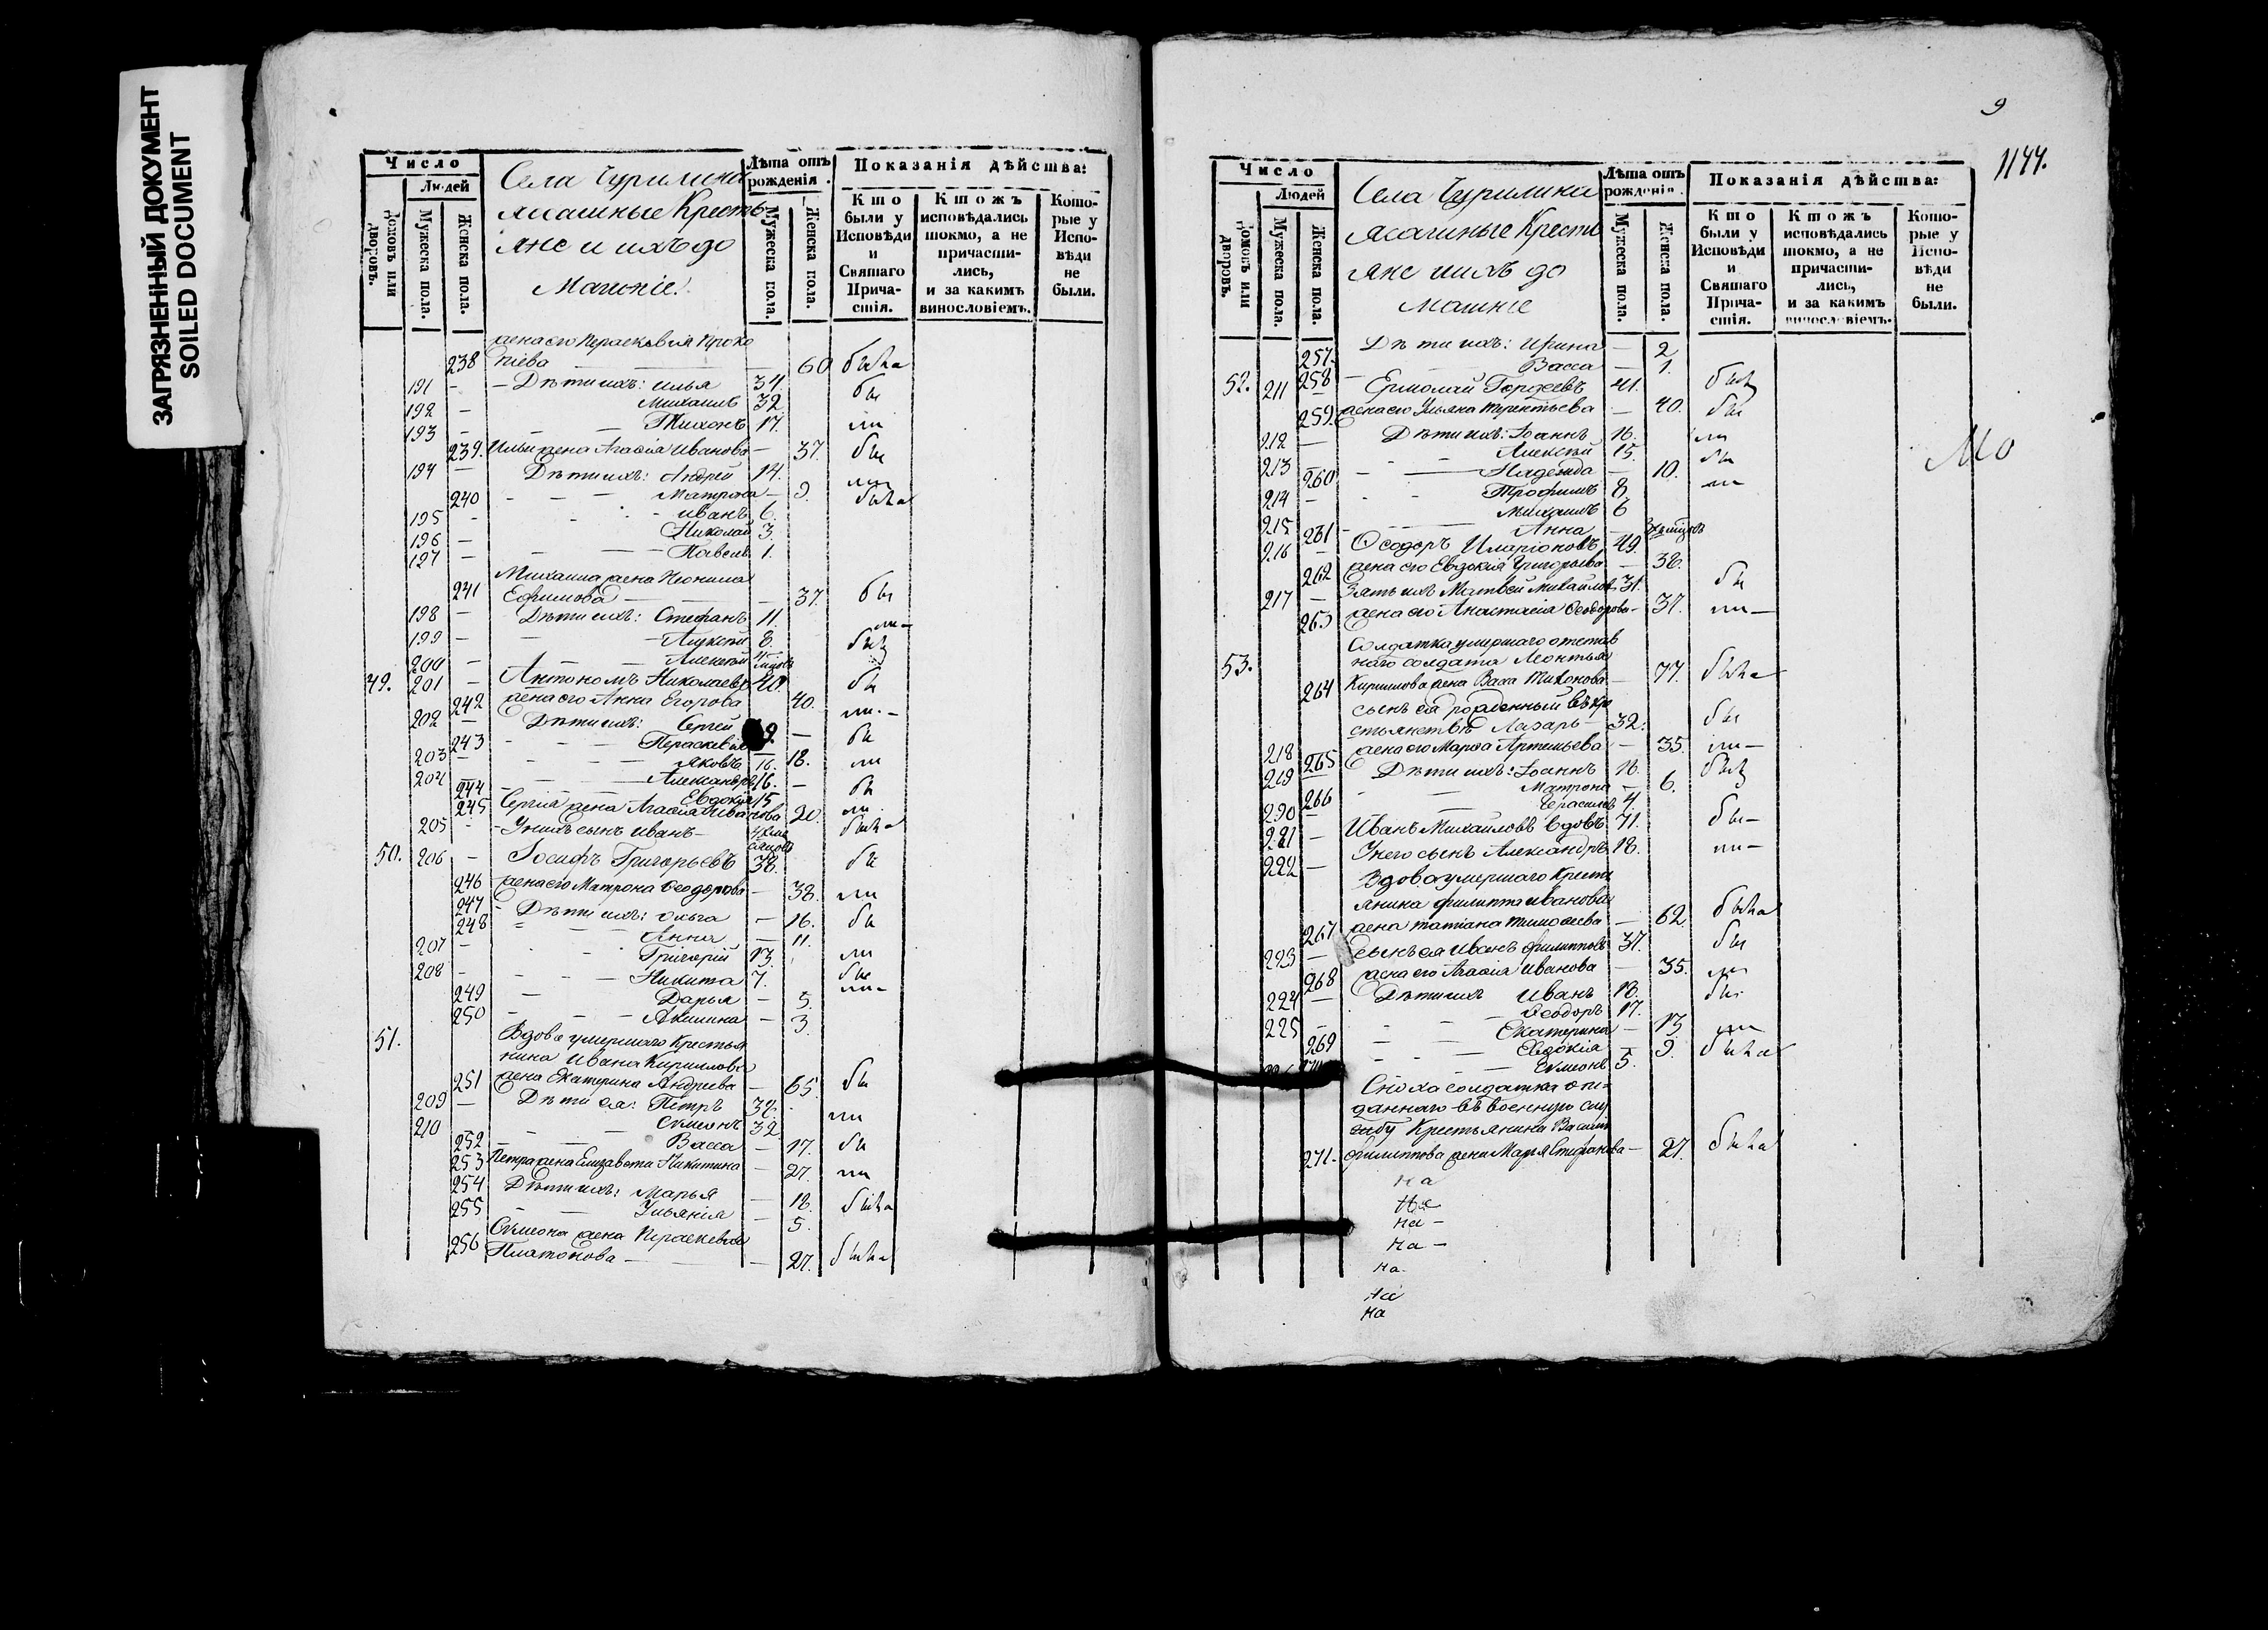 ЗАГРЯЗНЕННЫЙ ДОКУМЕНТ
SOILED DOCUMENT
Число
Людей
Домовъ или дворовъ.
Мужеска пола.
Женска пола.
Села Чурилина
Ясашные Кресть
яне и ихъ до
машніе.
Лѣта отъ рожденія.
Мужеска пола.
Женска пола.
Показанія дѣйства:
Кто были у Исповѣди и Святаго Причастія.
Ктожъ исповѣдались токмо, а не причастились, и за какимъ винословіемъ.
Которые у Исповѣди не были.
жена его Параскевія Проко
238 піева 60 быха
191 - Дѣти ихъ: Илья 34. бы
192 - Михаилъ 32
193 - Тихонъ 17. ли
239. Ильи жена Агафія Иванова - 37. бы
194 - Дѣти ихъ: Андрей 14. ли
240 Матрона - 9. быха
195 - Иванъ 6.
196 - Николай 3.
197 - Павелъ 1.
Михаила жена Неонила
241 Ефимова - 37. бы
198 - Дѣти ихъ: Стефанъ 11. ли-
199 - Алексѣй 8. бы
200 - Алексѣй
49. 201 - Антономъ Николаевъ 40. бы
242 жена его Анна Егорова 40. ли.-
202 - Дѣти ихъ: Сергей 9. - бы
243 Параскевія - 18. ли
203 - Яковъ 16.
204 - Александръ 16. - бы
244 Евдокія 15
245 Сергія жена Агафія Иванова 20. ли.
205 - У нихъ сынъ Иванъ - быха
50. 206 - Іосифъ Григорьевъ 38. бы
246 жена его Матрона Ѳеодорова - 38. ли
247 - Дѣти ихъ: Ольга - 16. бы
248 Анна - 11.
207 - Григорій 13. ли
208 - Никита 7. бы
249 Дарья - 5. ли-
250 Акилина - 3.
51. Вдова умершаго Крестья
нина Ивана Кириллова
251 жена Екатерина Андреева - 65. бы
209 - Дѣти ея: Петръ 37. ли
210 Симеонъ 32.
252 Васса - 17. бы
253 Петра жена Елизавета Никитина - 27. ли
254 Дѣти ихъ: Марья - 18. быха
255 Ульянія - 5.
Симеона жена Параскевія
256 Платонова - 27. быха
9
1144.
Число
Людей
Домовъ или дворовъ.
Мужеска пола.
Женска пола.
Села Чурилина
Ясашные Кресть
яне и ихъ до
машніе
Лѣта отъ рожденія.
Мужеска пола.
Женска пола.
Показанія дѣйства:
Кто были у Исповѣди и Святаго Причастія.
Ктожъ исповѣдались токмо, а не причастились, и за какимъ винословіемъ.
Которые у Исповѣди не были.
257. Дѣти ихъ: Ирина - 2
258 Васса - 1.
52. 211 - Ермолай Гордеевъ 41. бы
259. жена его Ульяна Терентьева - 40. бы
212 - Дѣти ихъ: Іоаннъ 16. ли
213 Алексѣй 15. бы
260 Надежда - 10.
214 - Трофимъ 8. ли
215 Михаилъ 6
261 Анна -
216 - Ѳеодоръ Иларіоновъ 49.
262 жена его Евдокія Григорьева - 38.
217 - Зять ихъ Матвѣй Михайловъ 31. бы
263 жена его Анастасія Ѳеодорова - 31. ли-
Солдатка умершаго отстав
53. наго солдата Леонтья
264 Кириллова жена Васса Тихонова - 77. быха
сынъ ея рожденный въ кре
стьянствѣ Лазарь - 32. бы
218
265 жена его Марѳа Артемьева - 35. ли-
219 Дѣти ихъ: Іоаннъ 16. бы
266 Матрона - 6.
220 - Герасимъ 4.
221 - Иванъ Михайловъ вдовъ 71. бы-
222 - У него сынъ Александръ 18. ли-
Вдова умершаго Кресть
янина Филиппа Иванова
267 жена Татіана Тимоѳеева - 62 быха
223 - сынъ ея Иванъ Филипповъ 37. бы
268 жена его Агафія Иванова - 35. ли
224 - Дѣти ихъ Иванъ 18. бы
225 - Ѳеодоръ 17.
269 Екатерина - 13 ли
Евдокія - 9. быха
Симеонъ 5.
Сноха солдатка от-
даннаго въ военную слу
жбу Крестьянина Василія
271- Филиппова жена Марья Стефанова - 27. быха
на
на
на -
на -
на.
на
на